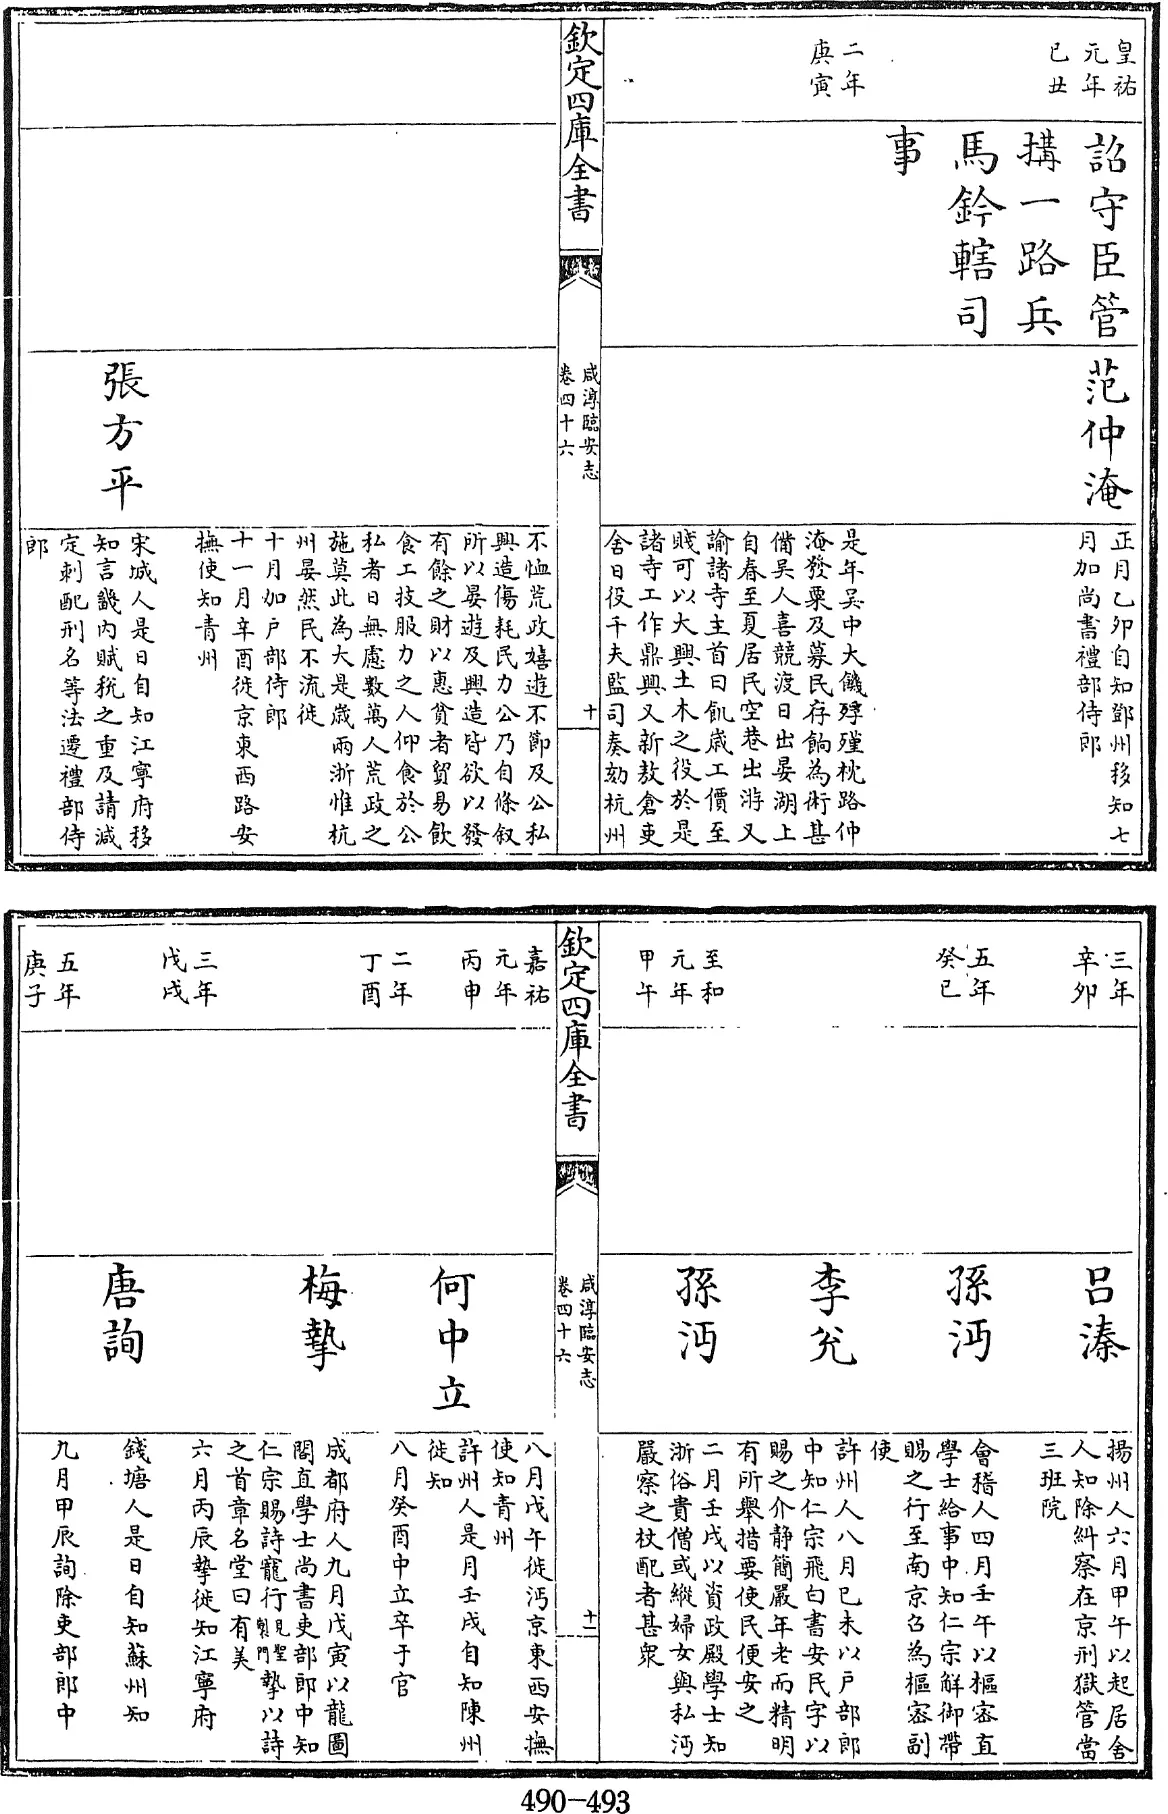 皇祐
元年
己丑
二年
庚寅
詔守臣管
搆一路兵
馬鈐轄司
事
范仲淹
正月乙卯自知鄧州移知七
月加尚書禮部侍郎
是年吳中大饑殍殣枕路仲
淹發粟及募民存餉為術甚
備吳人喜競渡日出晏湖上
自春至夏居民空巷出游又
諭諸寺主首曰飢嵗工價至
賤可以大興土木之役於是
諸寺工作鼎興又新敖倉吏
舍日役千夫監司奏劾杭州
欽定四庫全書
咸淳臨安志
卷四十六
十
不恤荒政嬉遊不節及公私
興造傷耗民力公乃自條叙
所以晏遊及興造皆欲以發
有餘之財以惠貧者貿易飲
食工技服力之人仰食於公
私者日無慮數萬人荒政之
施莫此為大是嵗兩浙惟杭
州晏然民不流徙
十月加户部侍郎
十一月辛酉徙京東西路安
撫使知青州
張方平
宋城人是日自知江寧府移
知言畿内賦稅之重及請減
定刺配刑名等法遷禮部侍
郎
三年
辛卯
五年
癸巳
至和
元年
甲午
吕溱
揚州人六月甲午以起居舍
人知除糾察在京刑獄管當
三班院
孫沔
會稽人四月壬午以樞宻直
學士給事中知仁宗解御帶
賜之行至南京召為樞宻副
使
李兊
許州人八月已未以户部郎
中知仁宗飛白書安民字以
賜之介静簡嚴年老而精明
有所舉措要使民便安之
孫沔
二月壬戌以資政殿學士知
浙俗貴僧或縱婦女與私沔
嚴察之杖配者甚衆
欽定四庫全書
咸淳臨安志
卷四十六
十一
嘉祐
元年
丙申
二年
丁酉
三年
戊戌
五年
庚子
八月戊午徙沔京東西安撫
使知青州
何中立
許州人是月壬戌自知陳州
徙知
八月癸酉中立卒于官
梅摯
成都府人九月戊寅以龍圖
閣直學士尚書吏部郎中知
仁宗賜詩寵行見聖製門摯以詩
之首章名堂曰有美
六月丙辰摯徙知江寧府
唐詢
錢塘人是日自知蘇州知
九月甲辰詢除吏部郎中
490-493